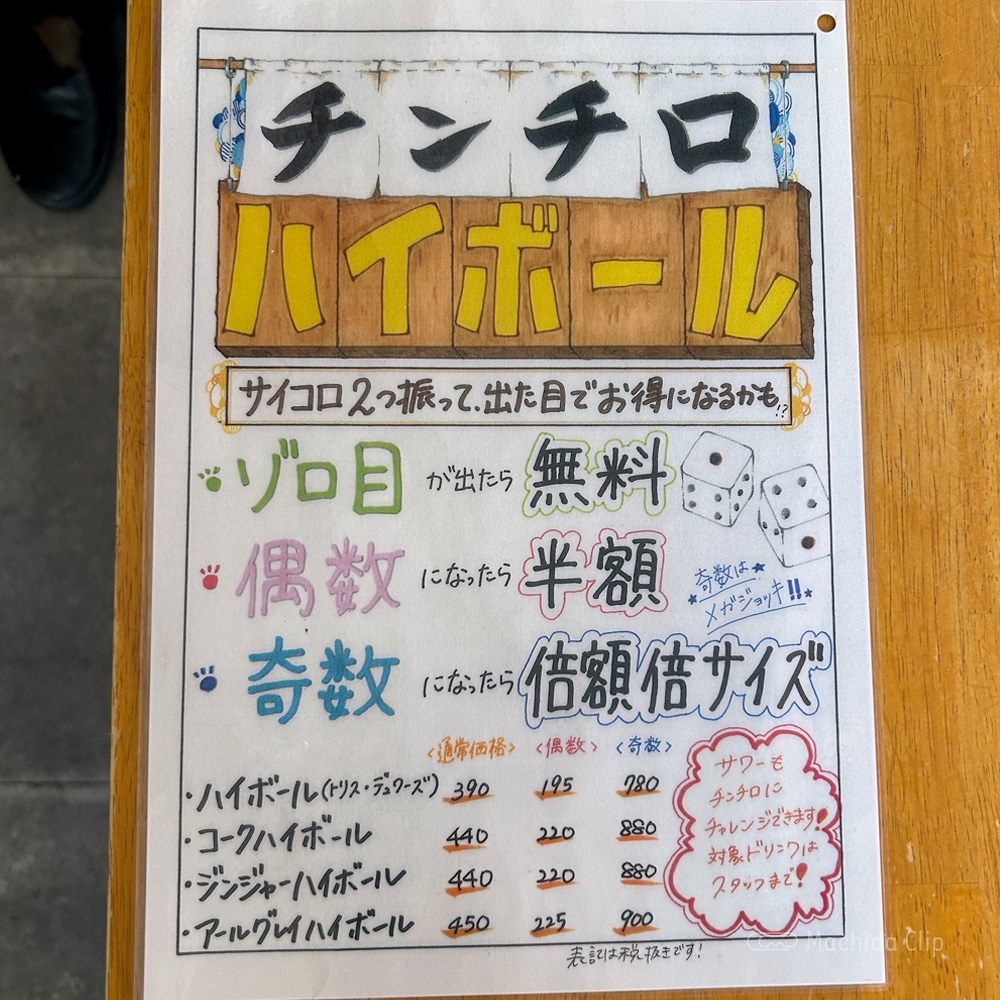 チンチロ
ハイボール
サイコロ2つ振って、出た目でお得になるかも!?
ゾロ目が出たら無料
偶数になったら半額
奇数は
メガジョッキ!!
奇数になったら倍額倍サイズ
<通常価格> <偶数> <奇数>
・ハイボール(トリス・デュワーズ) 390 195 780
・コークハイボール 440 220 880
・ジンジャーハイボール 440 220 880
・アールグレイハイボール 450 225 900
サワーも
チンチロに
チャレンジできます!
対象ドリンクは
スタッフまで!
表記は税抜きです!
Machida Clip